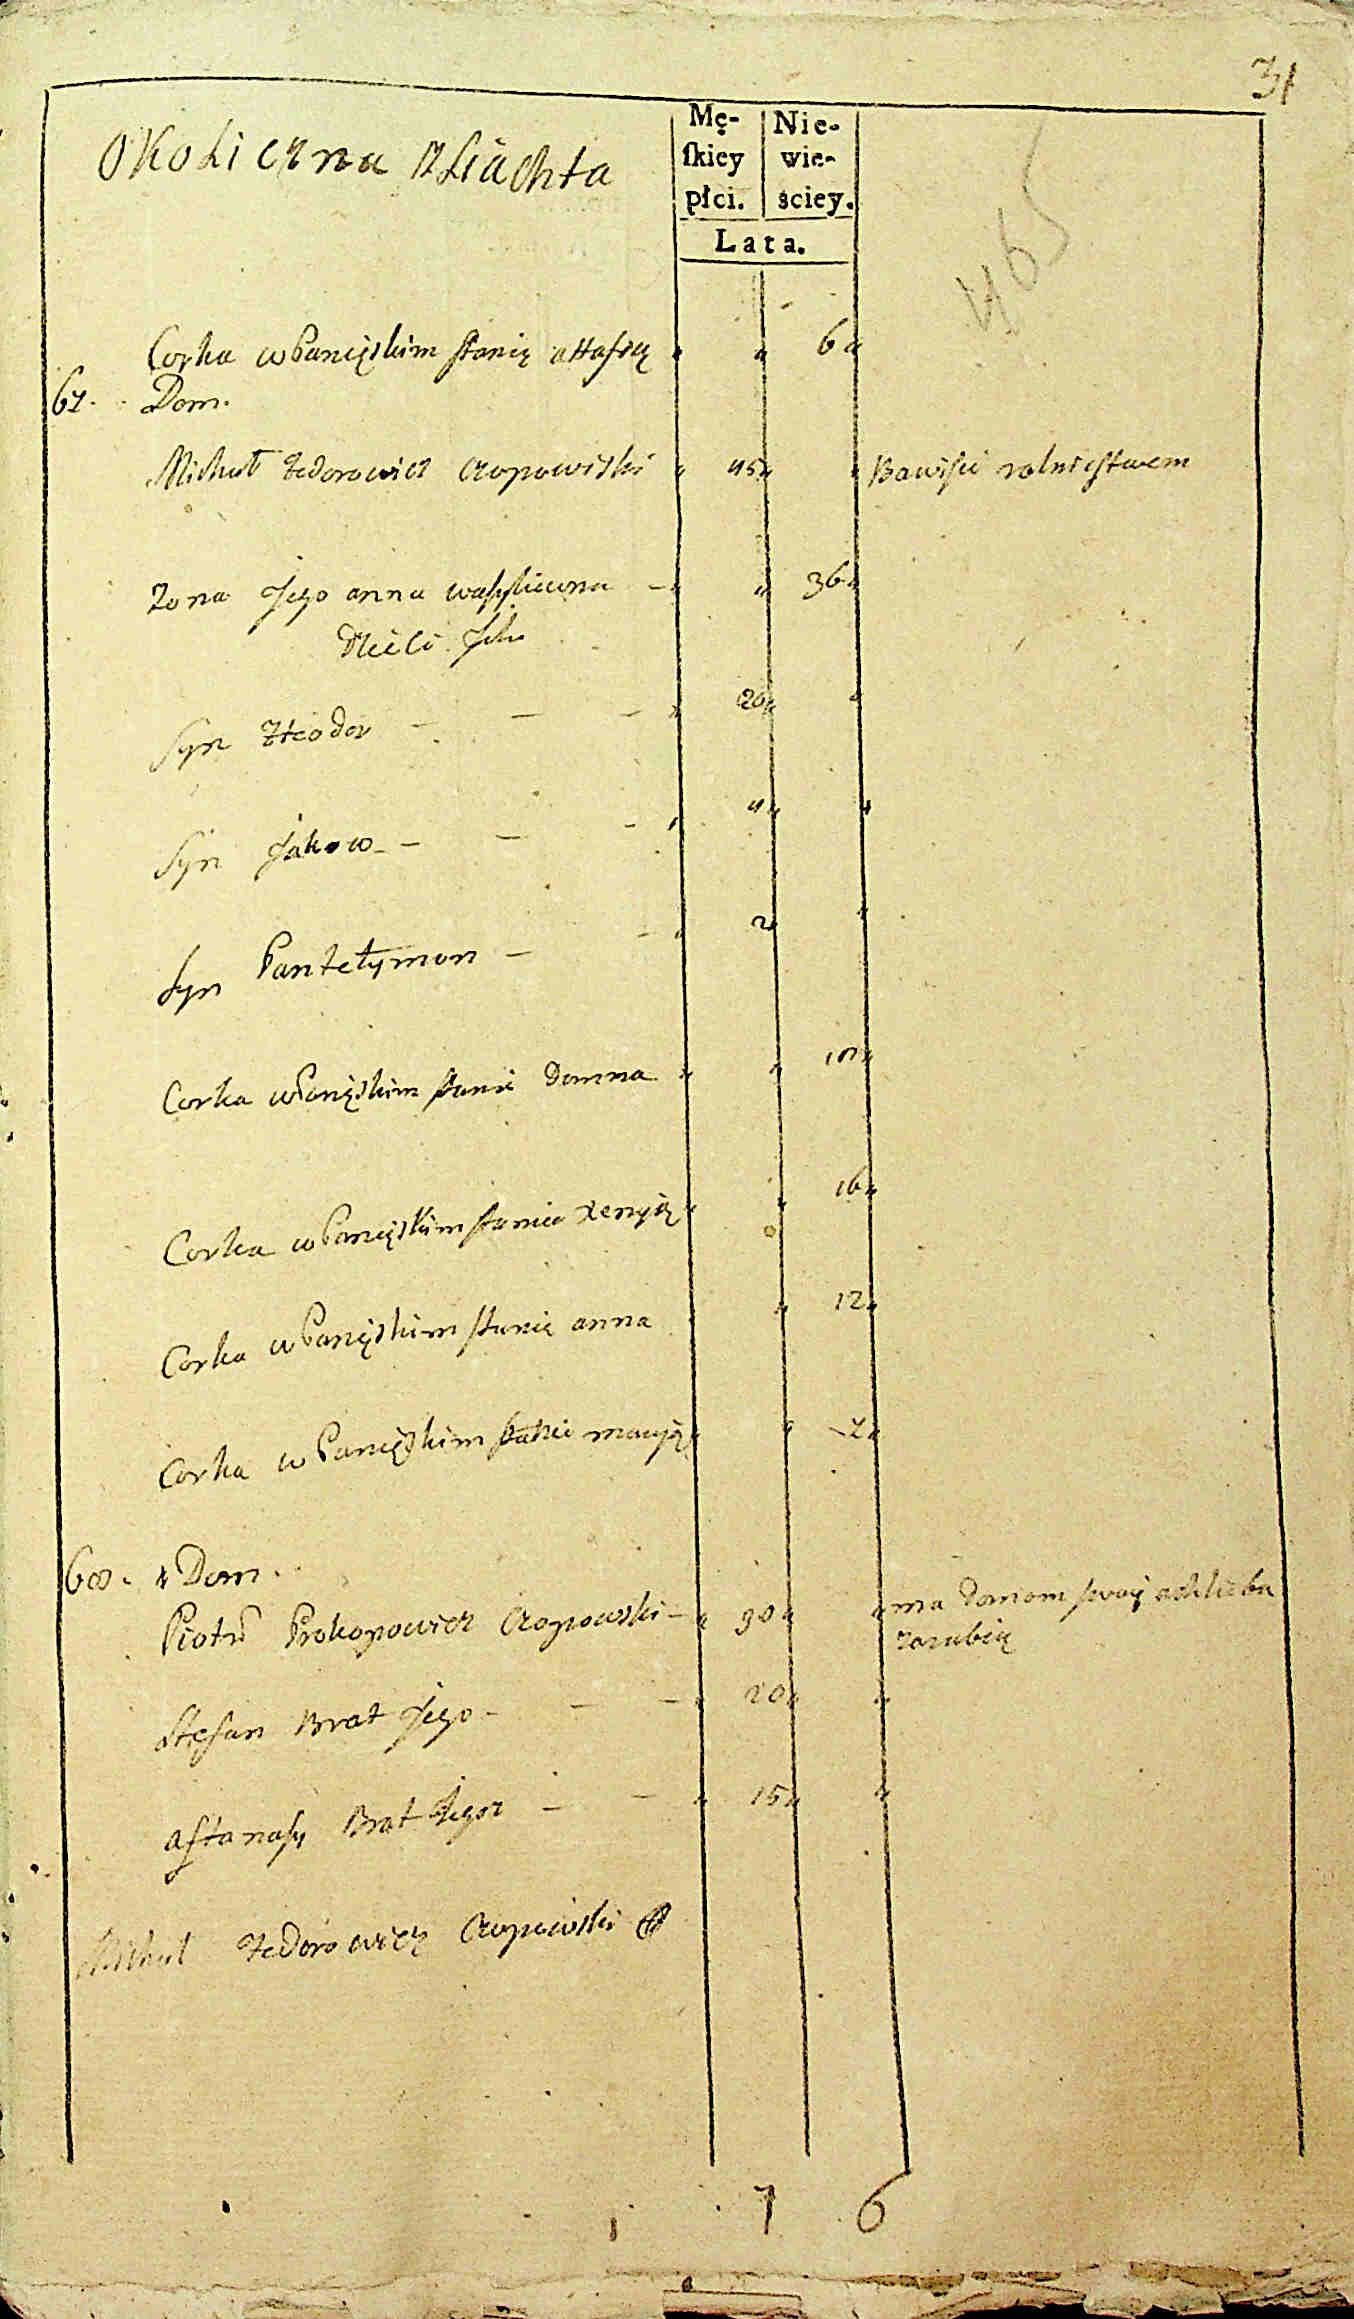 31
Okoliczna szliachta
Mę-
skiey
płci.
Nie-
wie-
sciey.
Lata.
465
Corka w Panięskim stanię 6
67. Dom.
Michał Fedorowicz Czopowiski 45 Bawi się rolnictwem
Zona Jego anna wasyliewna 36
Dzieci Ich
Syn Fteodor 20
Syn Jakow 4
Syn Pantełymon 2
Corka w Panięskim stanie Domna
Corka w Panięskim stanie xenyia 16
Corka w Panięskim stanię anna 12
Corka w Panięskim stanie maryia 2
68. Dom.
Piotr Prokopowicz Czopowski 30 ma Domom swoy a chlieba
zarabia
Stefan Brat Jego 20
Aftanasy Brat Jego 15
Michał Fedorowicz Czopowiski
7 6